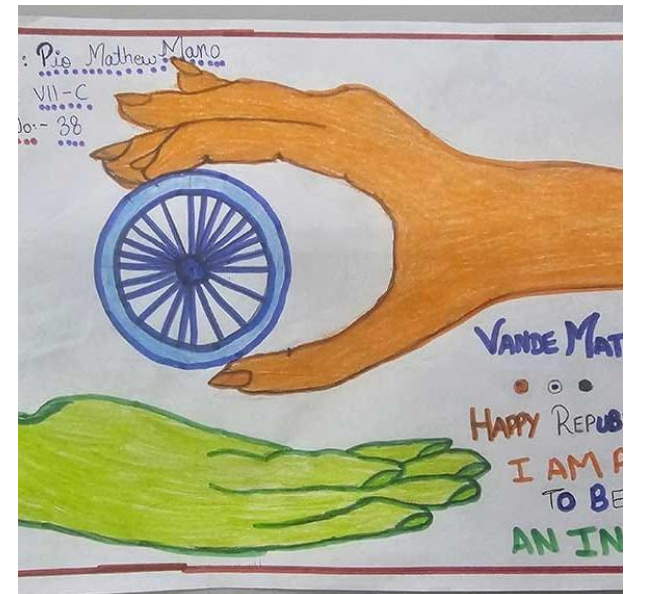 : Pio Mathew Mano
VII-C
No:- 38
VANDE MAT
HAPPY REPUB
I AM P
TO BE
AN IN